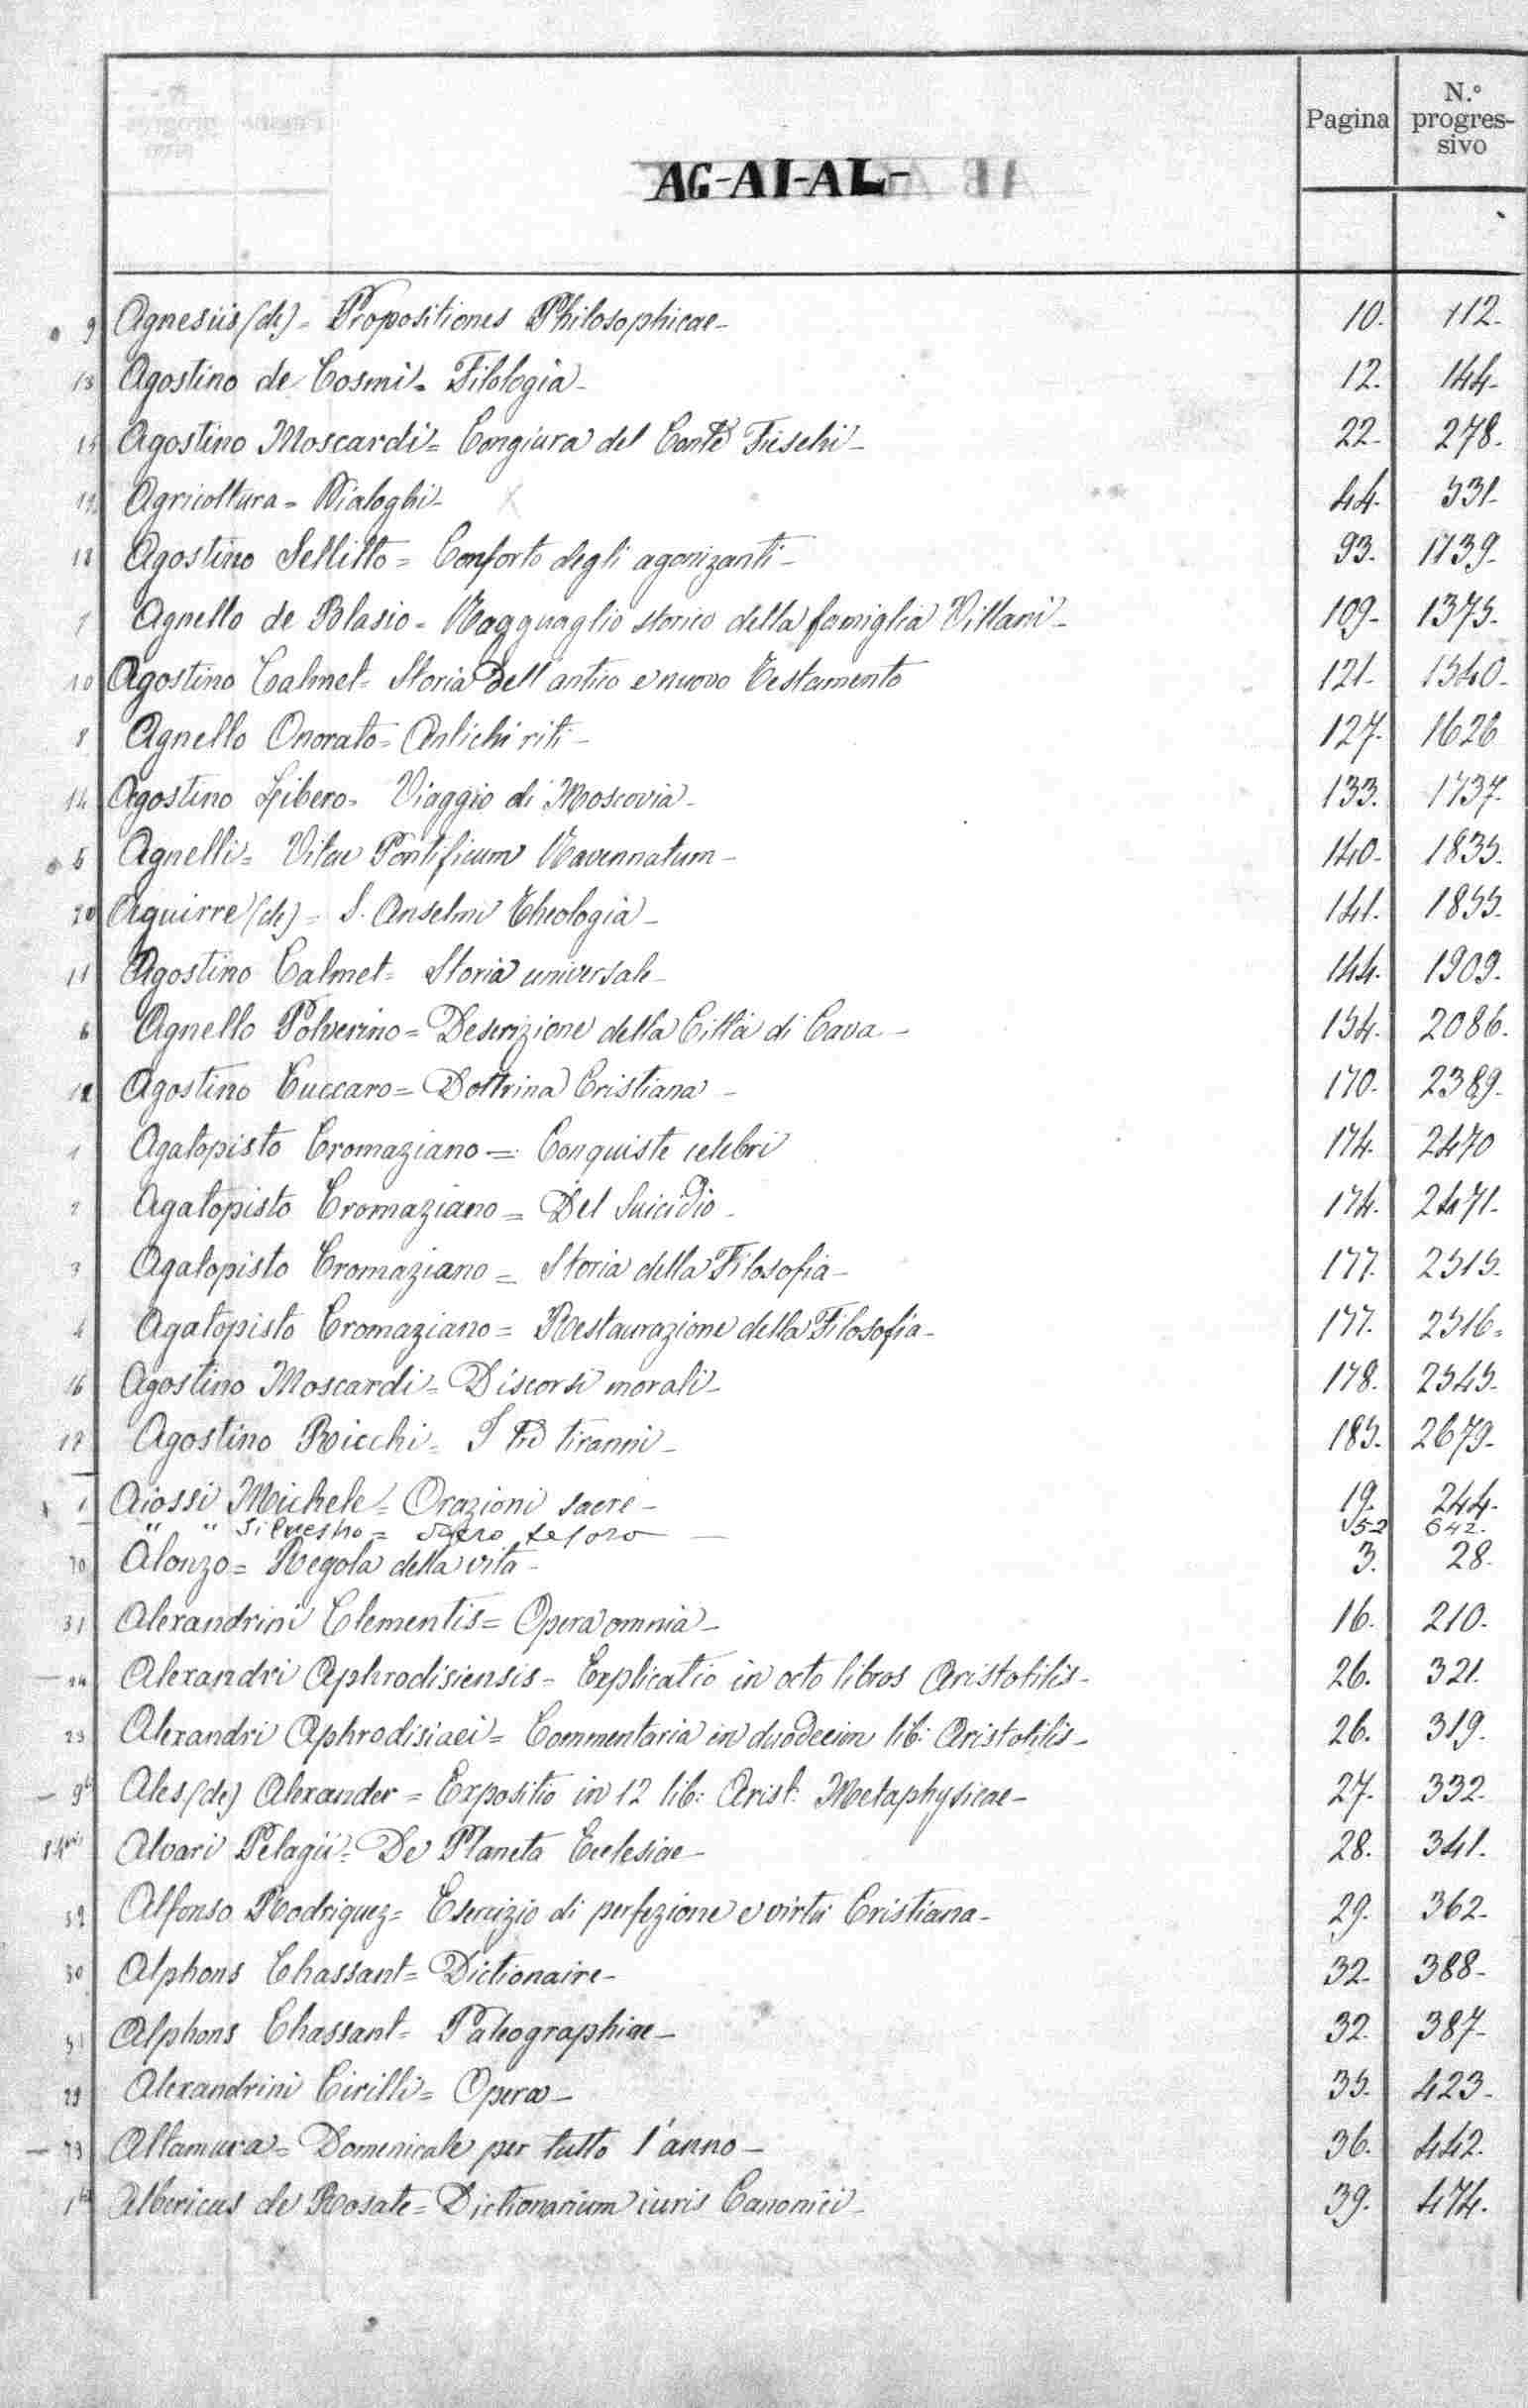 Pagina N.° progres-sivo
AG-AI-AL-
9 Agnesiis (de) = Propositiones Philosophicae - 10. 112.
13 Agostino de Cosmi = Filologia - 12. 144.
15 Agostino Moscardi = Congiura del Conte Fieschi - 22. 278.
19 Agricoltura = Dialoghi - 44. 531.
18 Agostino Sellitto = Conforto degli agonizanti - 93. 1139.
7 Agnello de Blasio = Ragguaglio storico della famiglia Villani - 109. 1375.
10 Agostino Calmet = Storia Dell'antico e nuovo Testamento 121. 1540.
8 Agnello Onorato = Antichi riti - 127. 1626
14 Agostino Libero = Viaggio di Moscovia - 133. 1737.
5 Agnelli = Vitae Pontificum Ravennatum - 140. 1835.
20 Aguirre (de) = S. Anselmi Theologia - 141. 1855.
11 Agostino Calmet = Storia universale - 144. 1909.
6 Agnello Polverino = Descrizione della Città di Cava - 154. 2086.
12 Agostino Cuccaro = Dottrina Cristiana - 170. 2389.
1 Agatopisto Cromaziano = Conquiste celebri 174. 2470
2 Agatopisto Cromaziano = Del Suicidio - 174. 2471.
3 Agatopisto Cromaziano = Storia della Filosofia - 177. 2515.
4 Agatopisto Cromaziano = Restaurazione della Filosofia - 177. 2516.
16 Agostino Moscardi = Discorsi morali - 178. 2545.
17 Agostino Ricchi = I tre tiranni - 185. 2679.
1 Aiossi Michele = Orazioni sacre - 19. 244.
" " Silvestro = Sacro tesoro - 52 642.
Alonzo = Regola della vita - 3. 28.
31 Alexandrini Clementis = Opera omnia - 16. 210.
24 Alexandri Aphrodisiensis = Explicatio in octo libros Aristotilis - 26. 321.
23 Alexandri Aphrodisiaei = Commentaria in duodecim lib: Aristotilis - 26. 319.
Ales (de) Alexander = Expositio in 12 lib: Arist: Metaphysicae - 27. 332.
Alvari Pelagii = De Planeta Ecclesiae - 28. 341.
Alfonso Rodriquez = Esercizio di perfezione e virtù Cristiana - 29. 362.
50 Alphons Chassant = Dictionaire - 32. 388.
51 Alphons Chassant = Paleographiae - 32. 387.
29 Alexandrini Cirilli = Opera - 35. 423.
Altamura = Domenicale per tutto l'anno - 36. 442.
Albericus de Rosate = Dictionarium iuris Canonici - 39. 474.